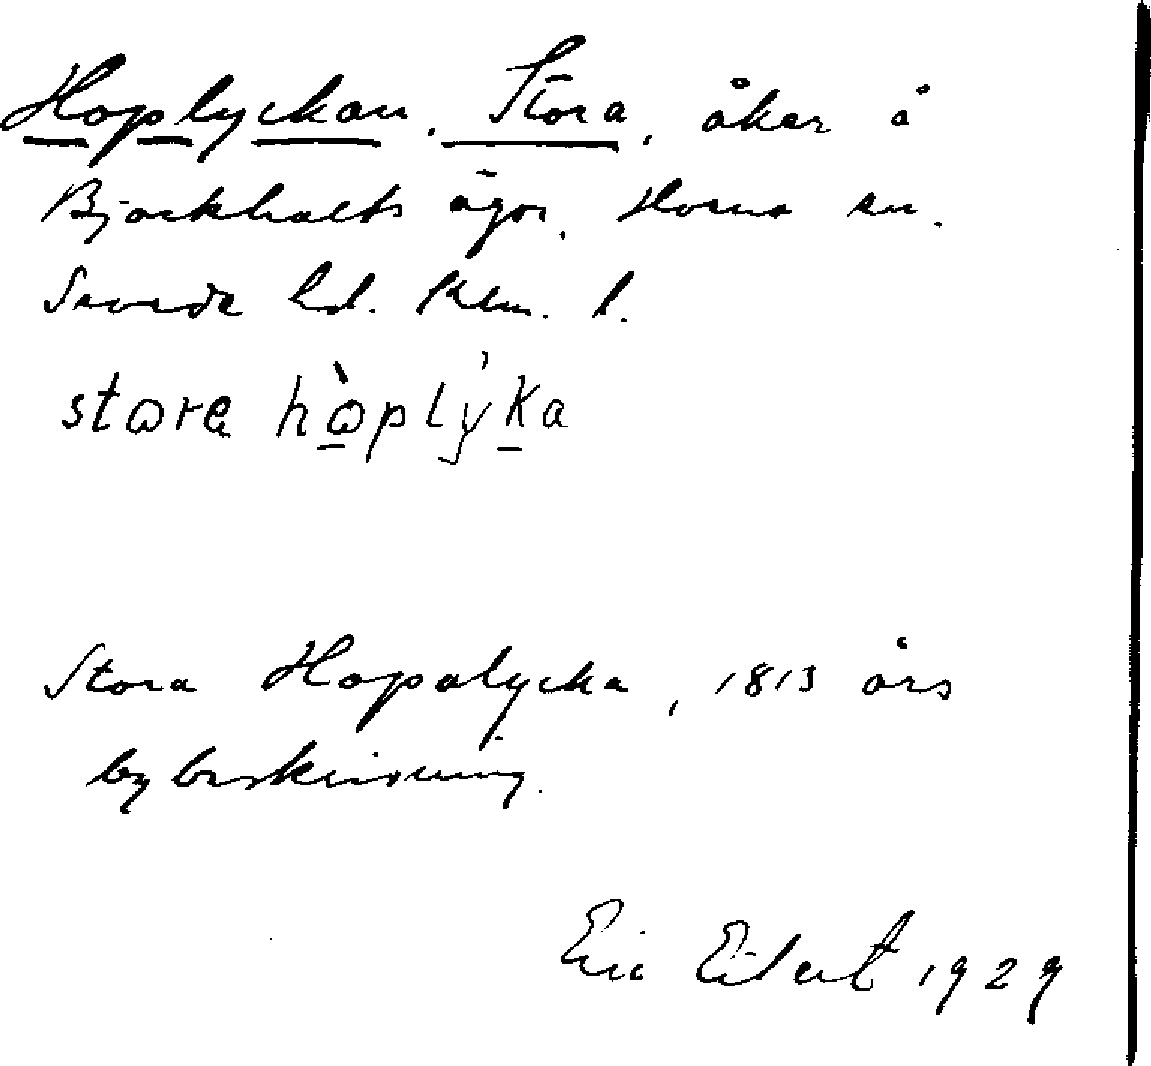 Hoplyckan, Stora, åker å
Björkhults ägor, Horns sn.
Sevede hd. Klm. l.
store hòplýka
Stora Hopalycka, 1813 års
bybeskrivning.
Eric Eilert 1929